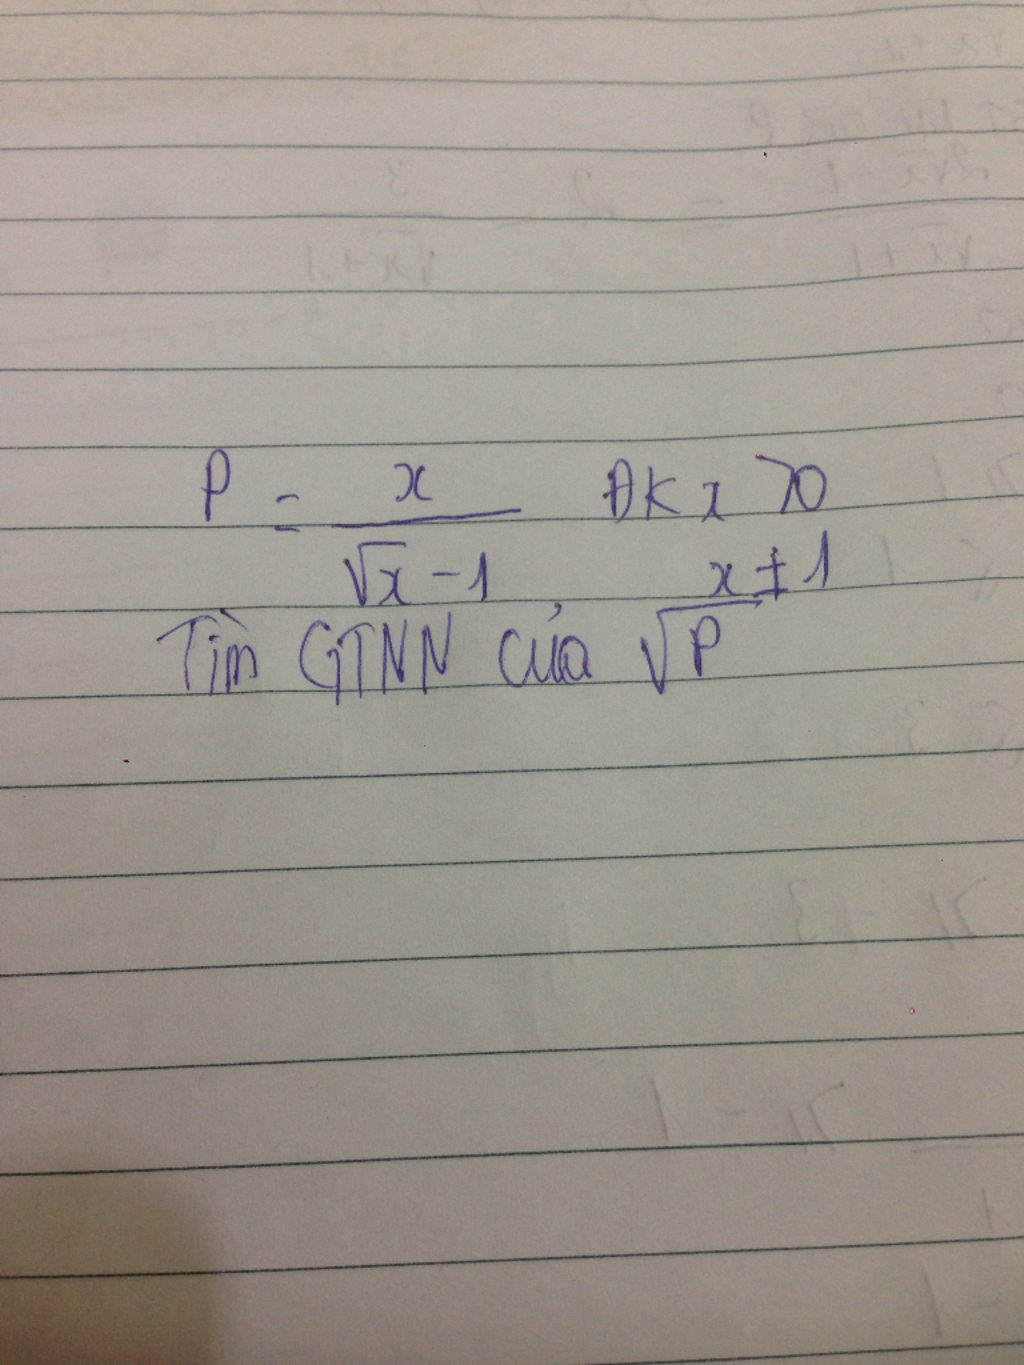 P = x / (√x - 1) ĐK x > 0
x ≠ 1
Tìm GTNN của √P